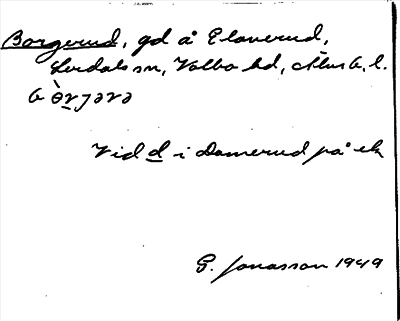 Borgerud, gd å Elaverud,
Lerdals sn, Valbo hd, Älvsb. l.
bò̤rjərə
Vid d i Damerud på ek
G. Jonasson 1949